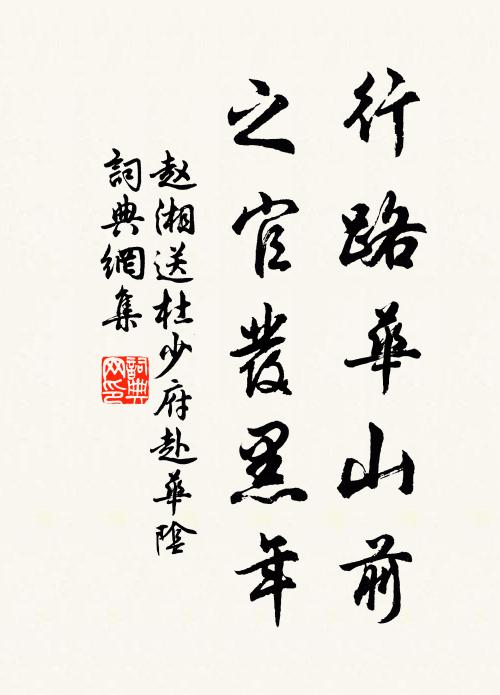 行路華山前
之官發黑年
赵湘送杜少府赴華陰
詞典網集
詞典
网印